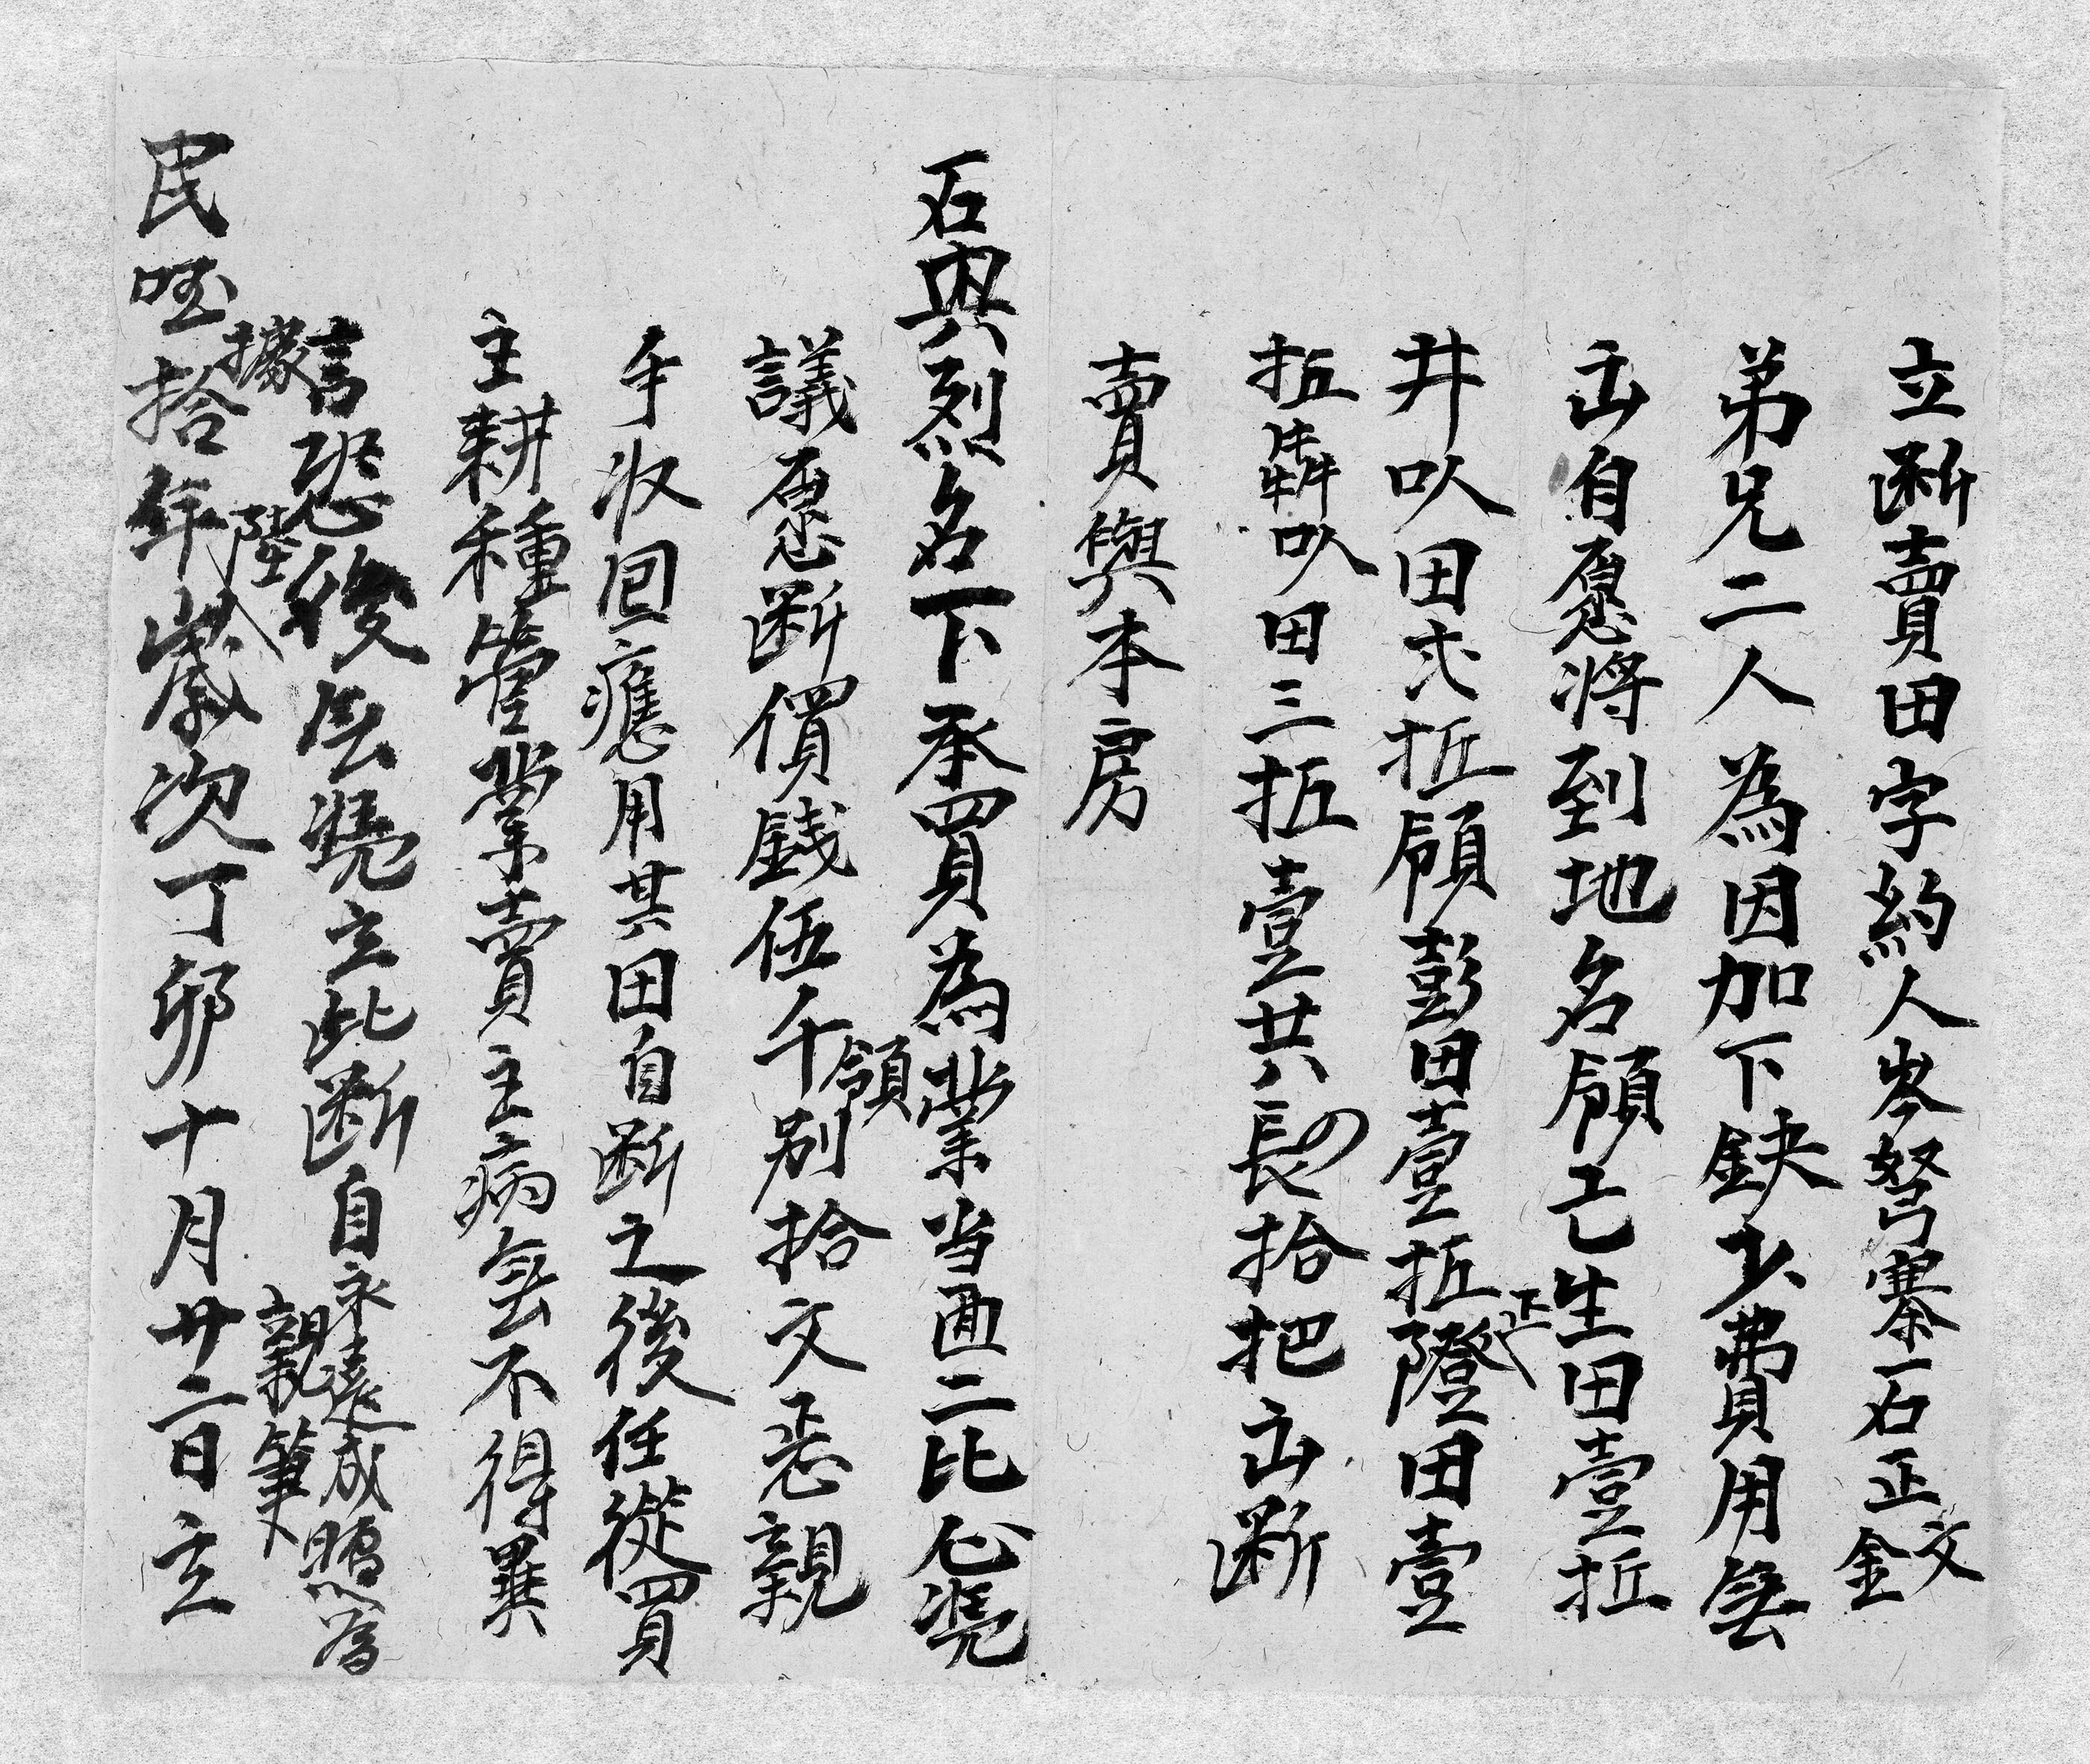 立断賣田字約人岑弩寨石正文金
弟兄二人為因加下缺少費用無
出自愿將到地名領七生田壹坵
井吹田弍坵領彭田壹坵隥田壹
坵犇吹田三坵壹共長拾把出断
賣與本房
石興烈名下承買為業当面二比心凴
議愿断價錢伍千別拾文悉親領
手收回應用其田自断之後任從買
主耕種管業賣主病無不得異
言恐後無凴立此断自永遠成照為據
親筆
民國拾陸年歲次丁卯十月廿二日立